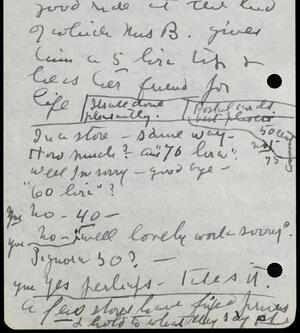 good ride at the end
of which Mrs B. gives
him a 5 lira tip &
he is her friend for
life
It's all done
pleasantly.
Postal cards
best places
50 cent
not
75
In a store - same way -
How much? ans "70 lira".
Well I'm sorry - good bye -
"60 lire"?
you no - 40 -
you no - "well lovely work sorry".
Signora 50? -
you Yes perhaps - takes it.
a few stores have fixed prices
& hold to what they say